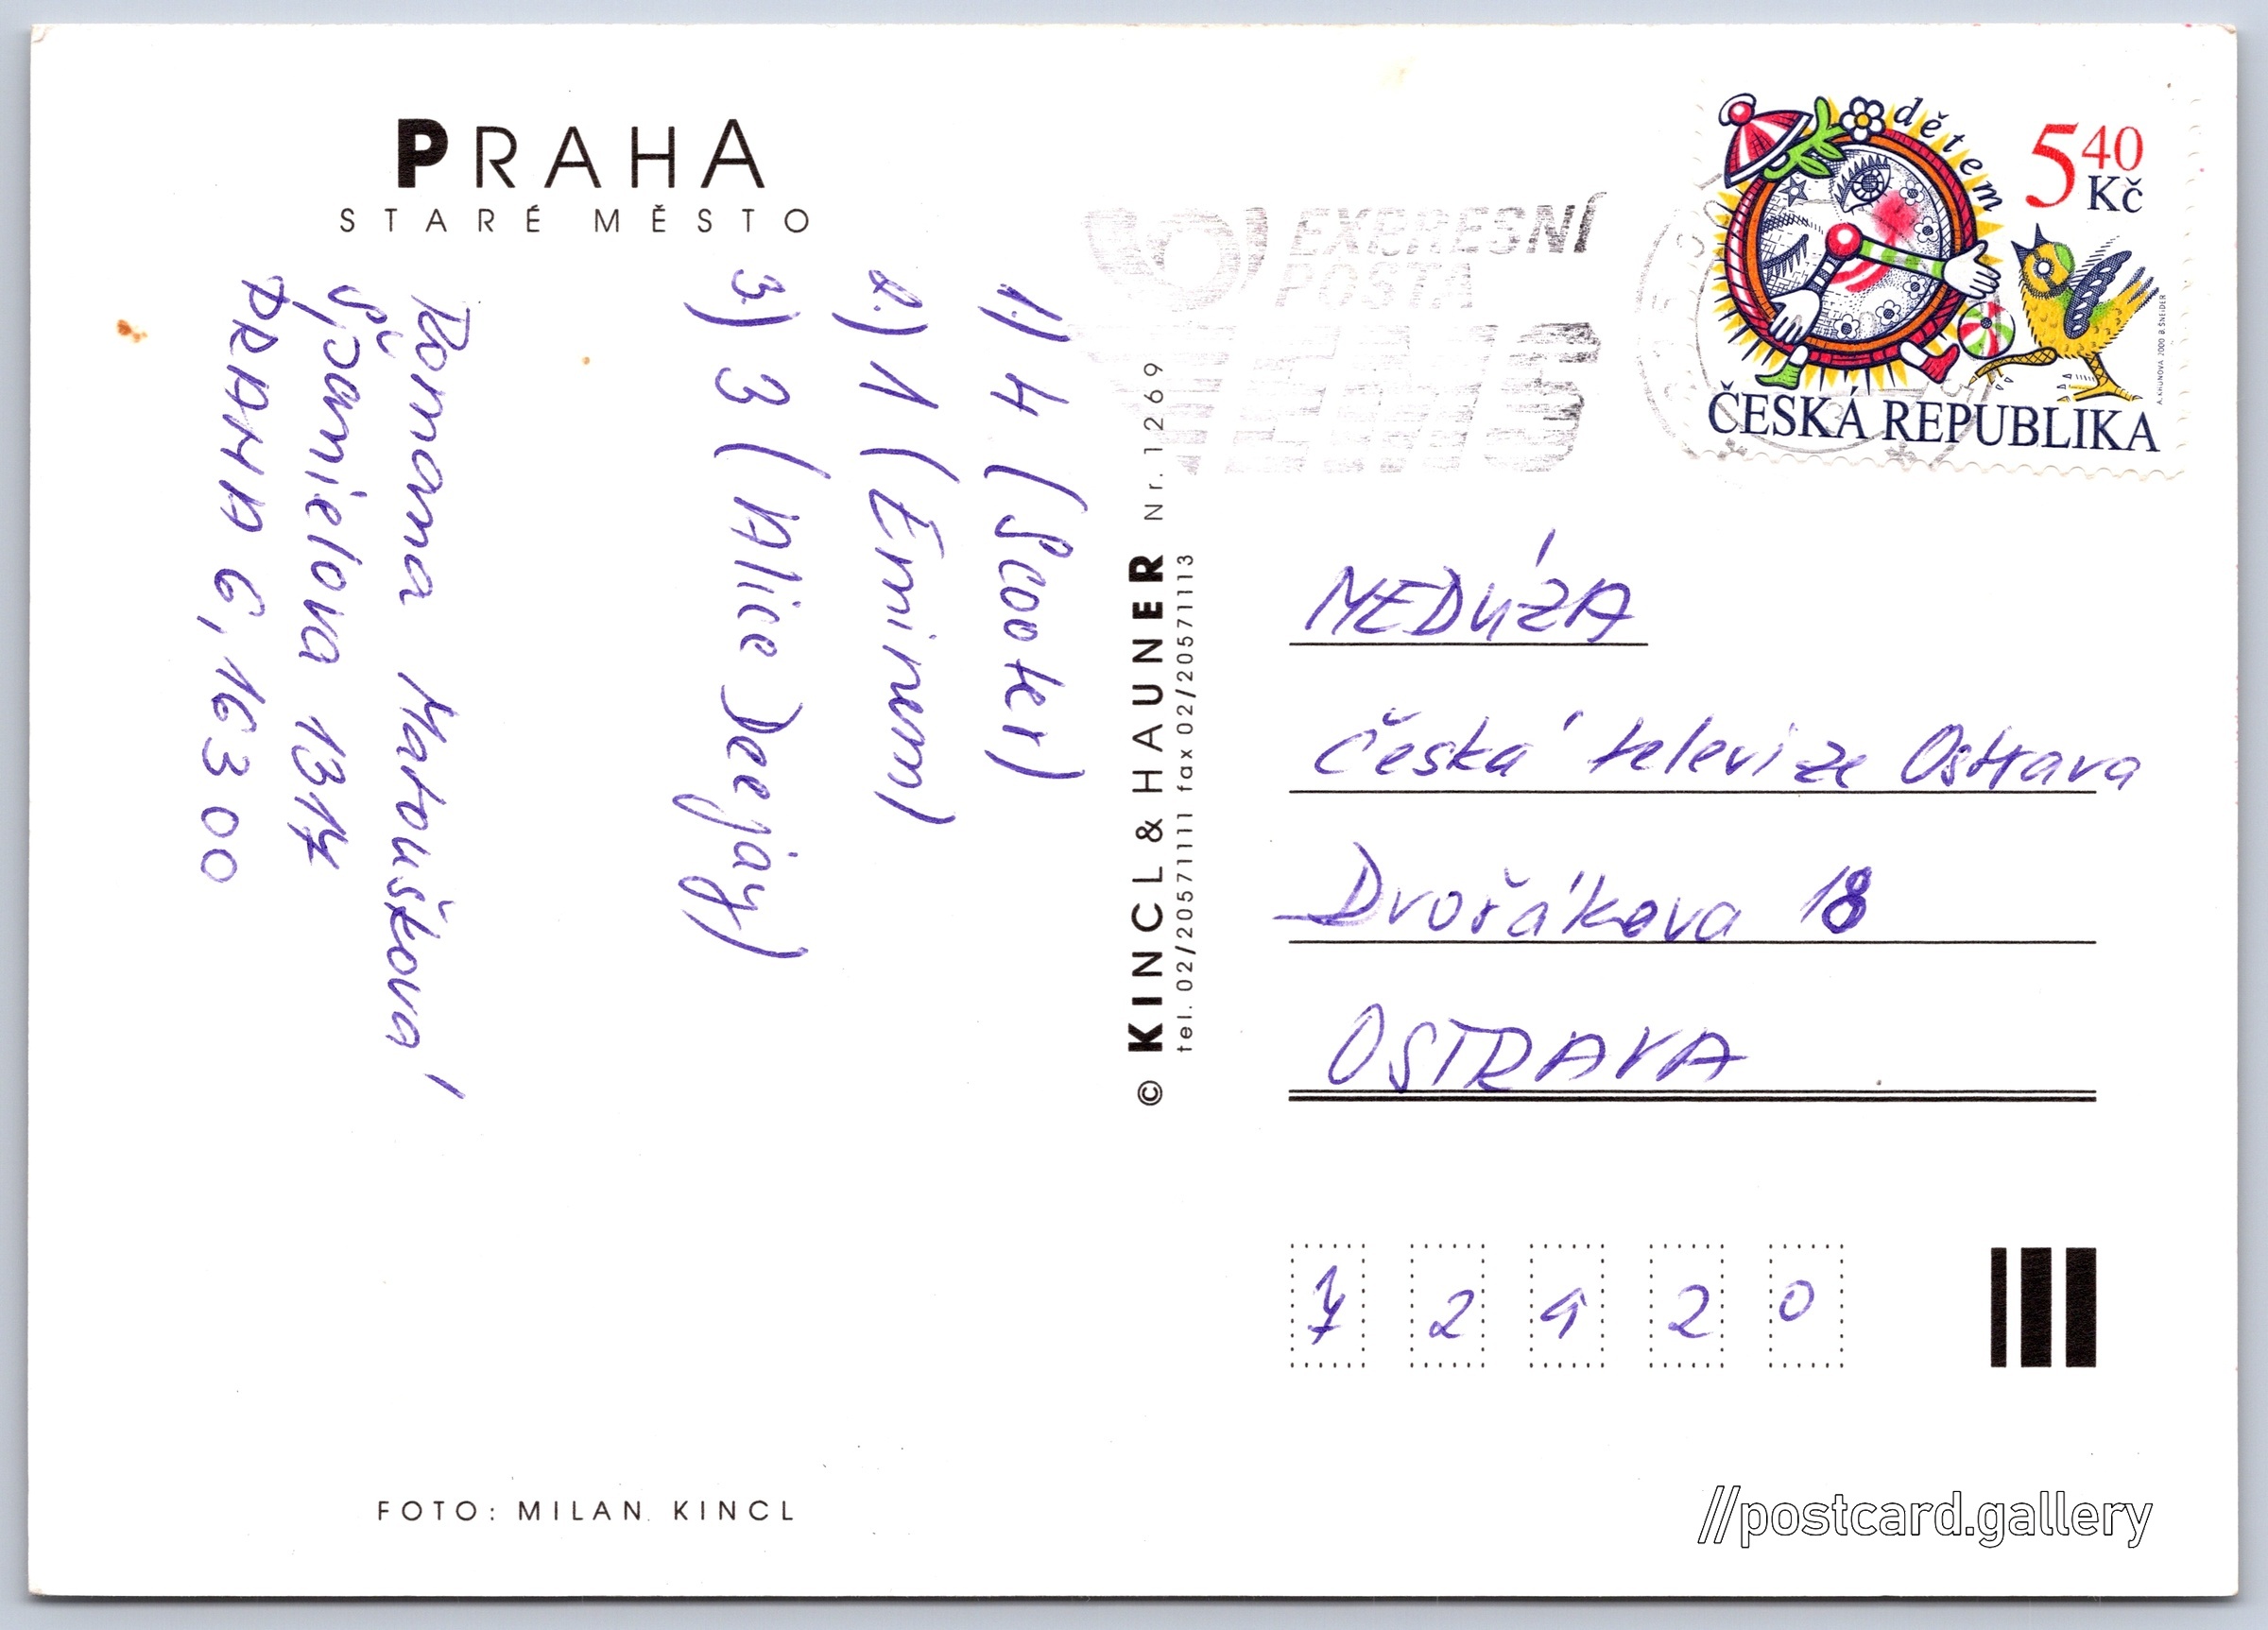 PRAHA
STARÉ MĚSTO
1.) 4 (Scooter)
2.) 1 (Eminem)
3.) 3 (Alice Deejay)
Romana Matoušková
Španielova 1314
PRAHA 6, 163 00
FOTO: MILAN KINCL
© KINCL & HAUNER Nr. 1269
tel. 02/20571111 fax 02/20571113
EXPRESNÍ
POŠTA
EMS
dětem
540
Kč
ČESKÁ REPUBLIKA
A. KHUNOVÁ 2000 B. ŠNEIDER
MEDÚZA
Česká televize Ostrava
Dvořákova 18
OSTRAVA
7 2 9 2 0
//postcard.gallery